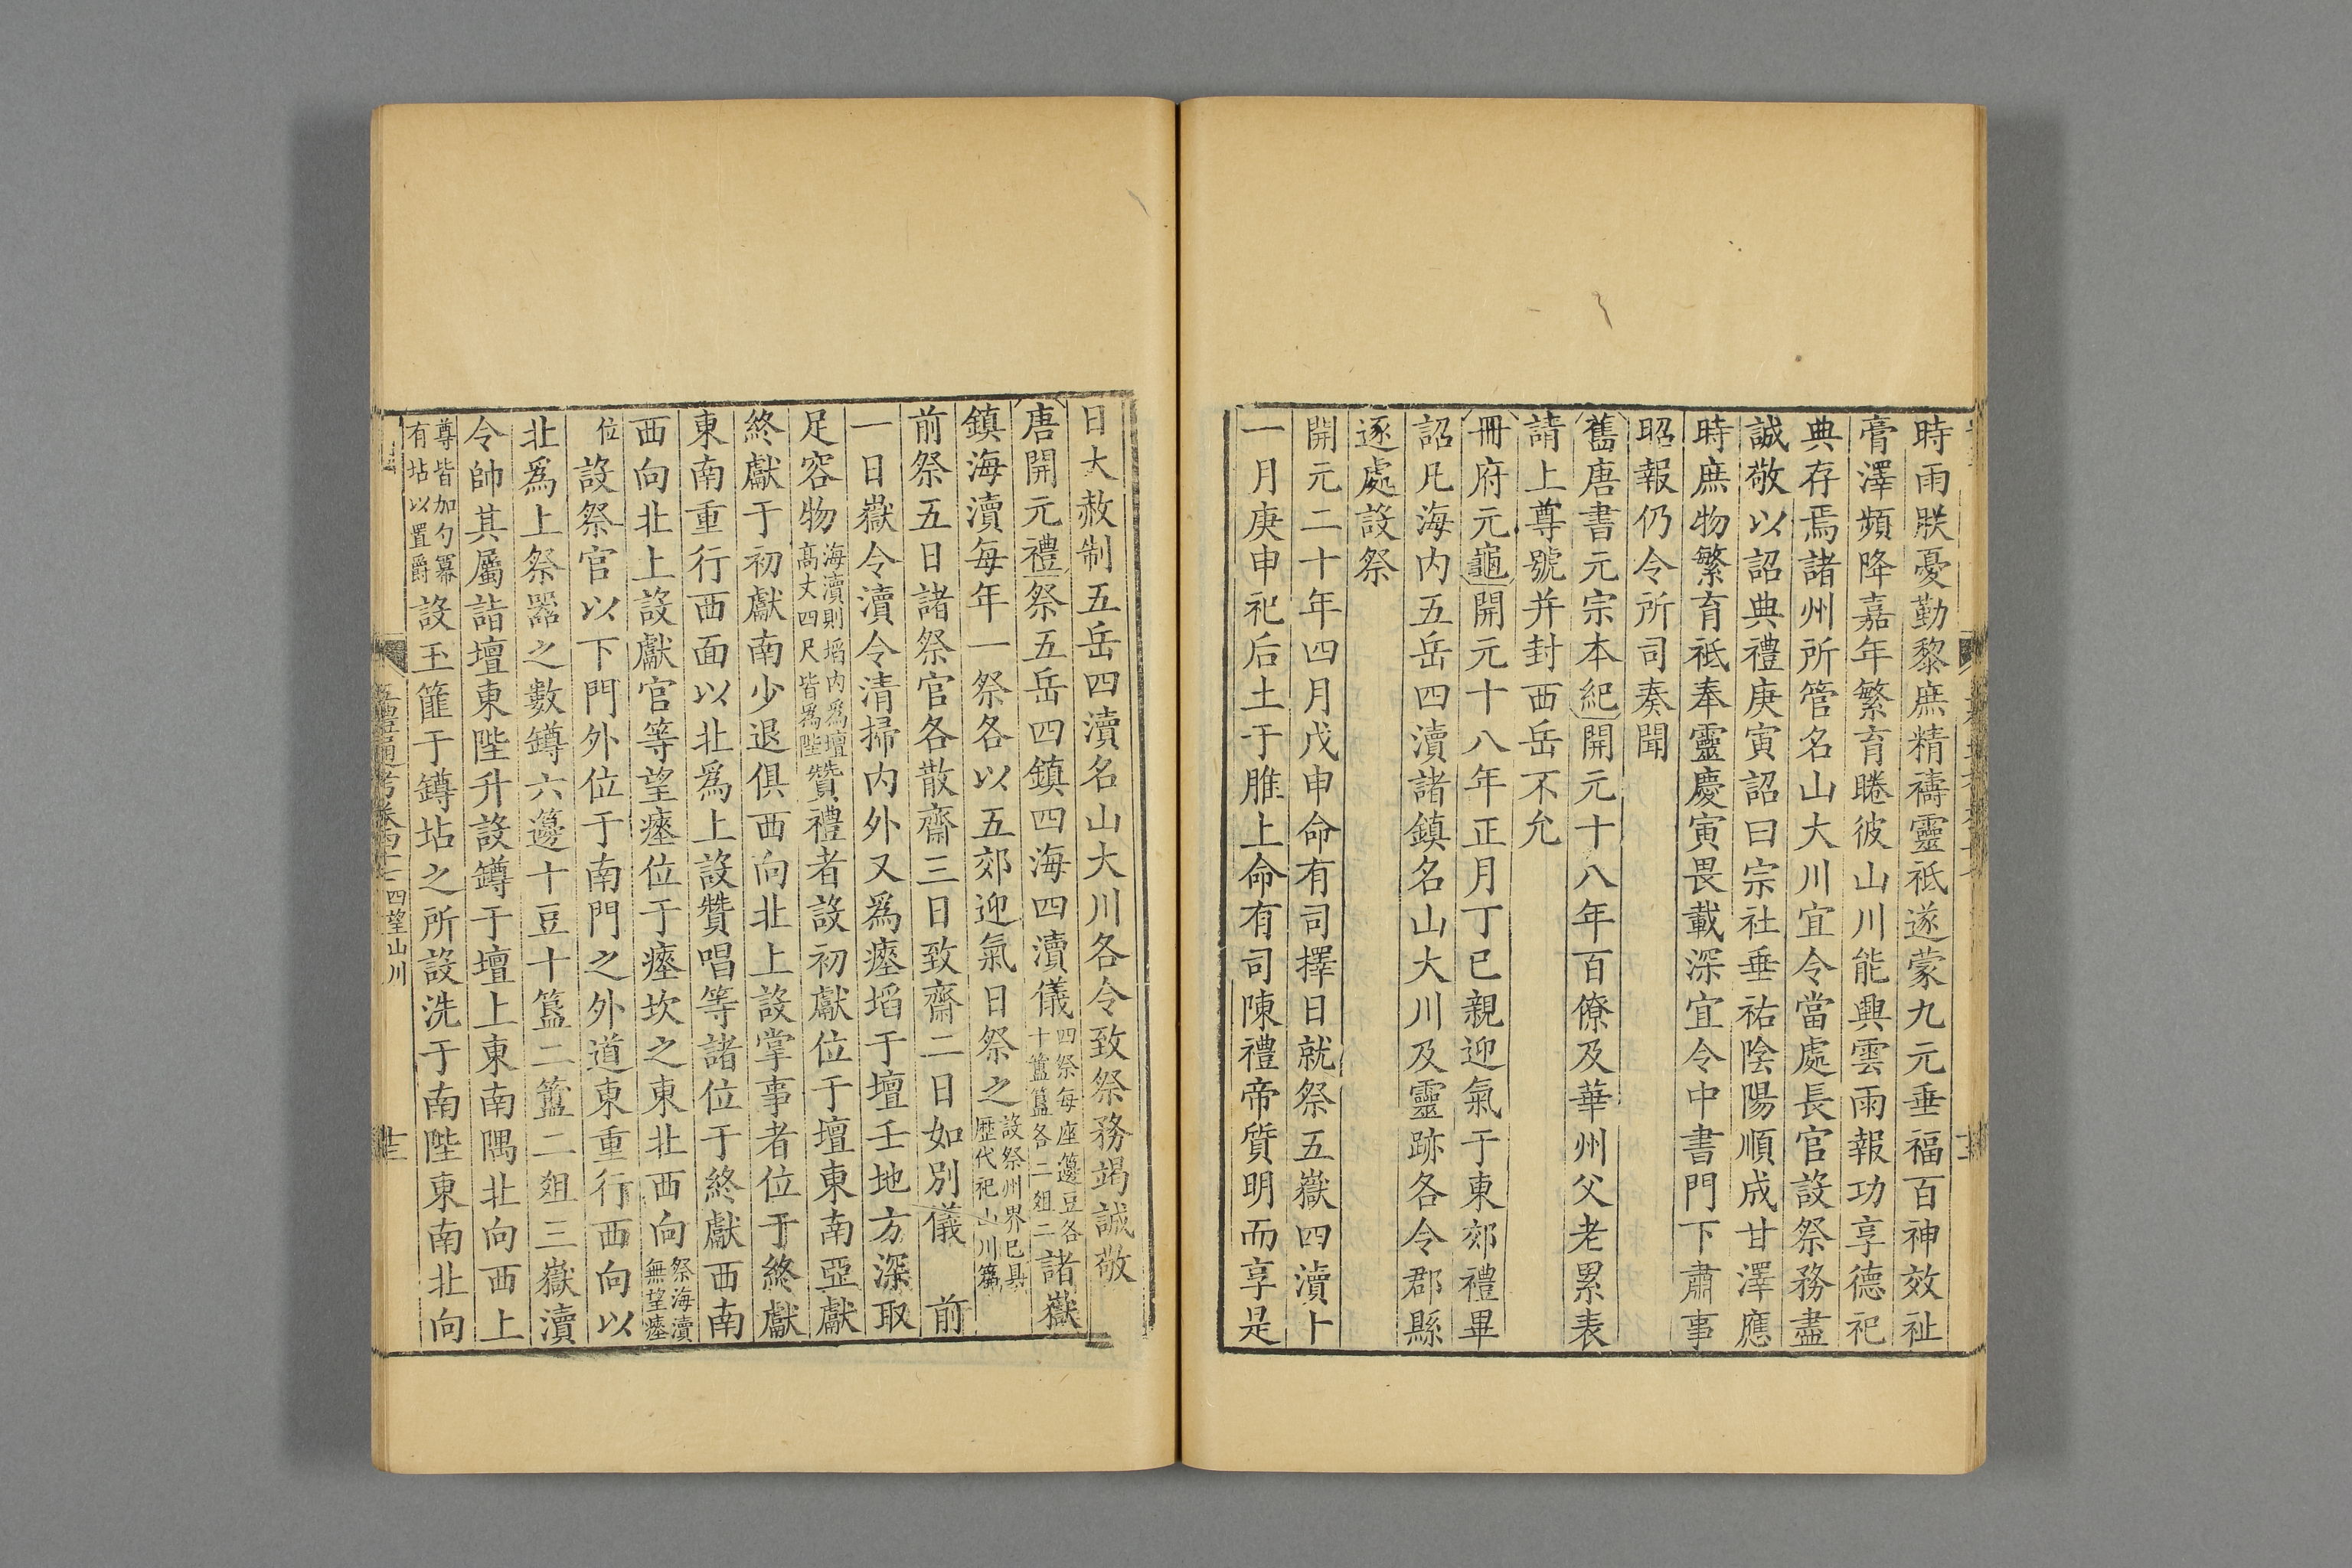 時雨朕憂勤黎庶精禱靈祇遂蒙九元垂福百神效祉
膏澤頻降嘉年繁育睠彼山川能興雲雨報功享德祀
典存焉諸州所管名山大川宜令當處長官設祭務盡
誠敬以詔典禮庚寅詔曰宗社垂祐陰陽順成甘澤應
時庶物繁育祗奉靈慶寅畏載深宜令中書門下肅事
昭報仍令所司奏聞
舊唐書元宗本紀開元十八年百僚及華州父老累表
請上尊號并封西岳不允
冊府元龜開元十八年正月丁巳親迎氣于東郊禮畢
詔凡海内五岳四瀆諸鎮名山大川及靈跡各令郡縣
逐處設祭
開元二十年四月戊申命有司擇日就祭五嶽四瀆卜
一月庚申祀后土于脽上命有司陳禮帝質明而享是
日大赦制五岳四瀆名山大川各令致祭務竭誠敬
唐開元禮祭五岳四鎮四海四瀆儀四祭每座籩豆各十簠簋各二俎二諸嶽
鎮海瀆每年一祭各以五郊迎氣日祭之設祭州界已具歷代祀山川篇
前祭五日諸祭官各散齋三日致齋二日如別儀　前
一日嶽令瀆令清掃内外又爲瘞埳于壇壬地方深取
足容物海瀆則埳内爲壇高丈四尺皆爲陛贊禮者設初獻位于壇東南亞獻
終獻于初獻南少退俱西向北上設掌事者位于終獻
東南重行西面以北爲上設贊唱等諸位于終獻西南
西向北上設獻官等望瘞位于瘞坎之東北西向祭海瀆無望瘞
位設祭官以下門外位于南門之外道東重行西向以
北爲上祭器之數罇六籩十豆十簋二簠二俎三嶽瀆
令帥其屬詣壇東陛升設罇于壇上東南隅北向西上
尊皆加勺冪有坫以置爵設玉篚于罇坫之所設洗于南陛東南北向
四望山川